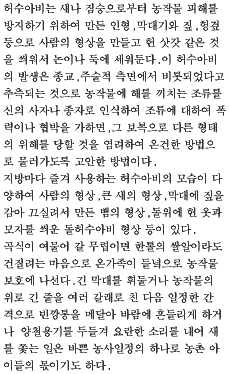 허수아비는 새나 짐승으로부터 농작물 피해를
방지하기 위하여 만든 인형,막대기와 짚,헝겊
등으로 사람의 형상을 만들고 헌 삿갓 같은 것
을 씌워서 논이나 둑에 세워둔다.이 허수아비
의 발생은 종교,주술적 측면에서 비롯되었다고
추측되는 것으로 농작물에 해를 끼치는 조류를
신의 사자나 종자로 인식하여 조류에 대하여 폭
력이나 협박을 가하면,그 보복으로 다른 형태
의 위해를 당할 것을 염려하여 온건한 방법으
로 물러가도록 고안한 방법이다.
지방마다 즐겨 사용하는 허수아비의 모습이 다
양하여 사람의 형상,큰 새의 형상,막대에 짚을
감아 끄실려서 만든 뱀의 형상,돌위에 헌 옷과
모자를 씌운 돌허수아비 형상 등이 있다.
곡식이 여물어 갈 무렵이면 한톨의 쌀알이라도
건질려는 마음으로 온가족이 들녘으로 농작물
보호에 나선다.긴 막대를 휘둘거나 농작물의
위로 긴 줄을 여러 갈래로 친 다음 일정한 간
격으로 빈깡통을 메달아 바람에 흔들리게 하거
나 양철용기를 두들겨 요란한 소리를 내어 새
를 쫓는 일은 바쁜 농사일정의 하나로 농촌 아
이들의 몫이기도 하다.